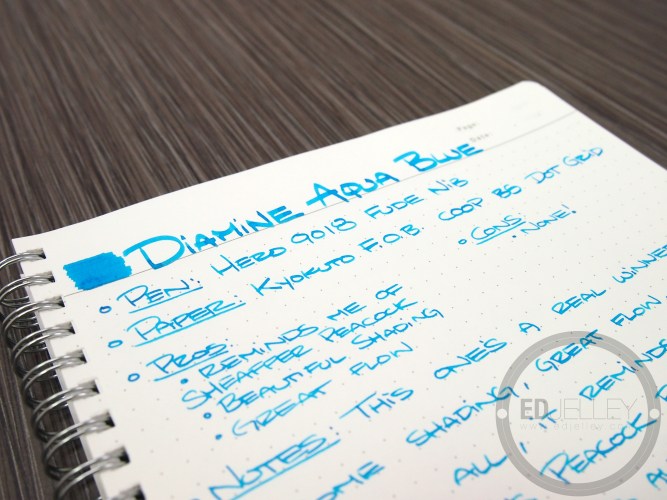 Page:
Date:
DIAMINE AQUA BLUE
PEN: HERO 9018 FUDE NIB
PAPER: KYOKUTO F.O.B. COOP B5 DOT GRID
PROS:
• REMINDS ME OF
SHEAFFER PEACOCK
• BEAUTIFUL SHADING
• GREAT FLOW
• CONS
• NONE!
NOTES: THIS ONE'S A REAL WINNE
SHADING, GREAT FLOW
ALL, I REMINDS
PEACOCK
ED JELLEY
www.edjelley.com